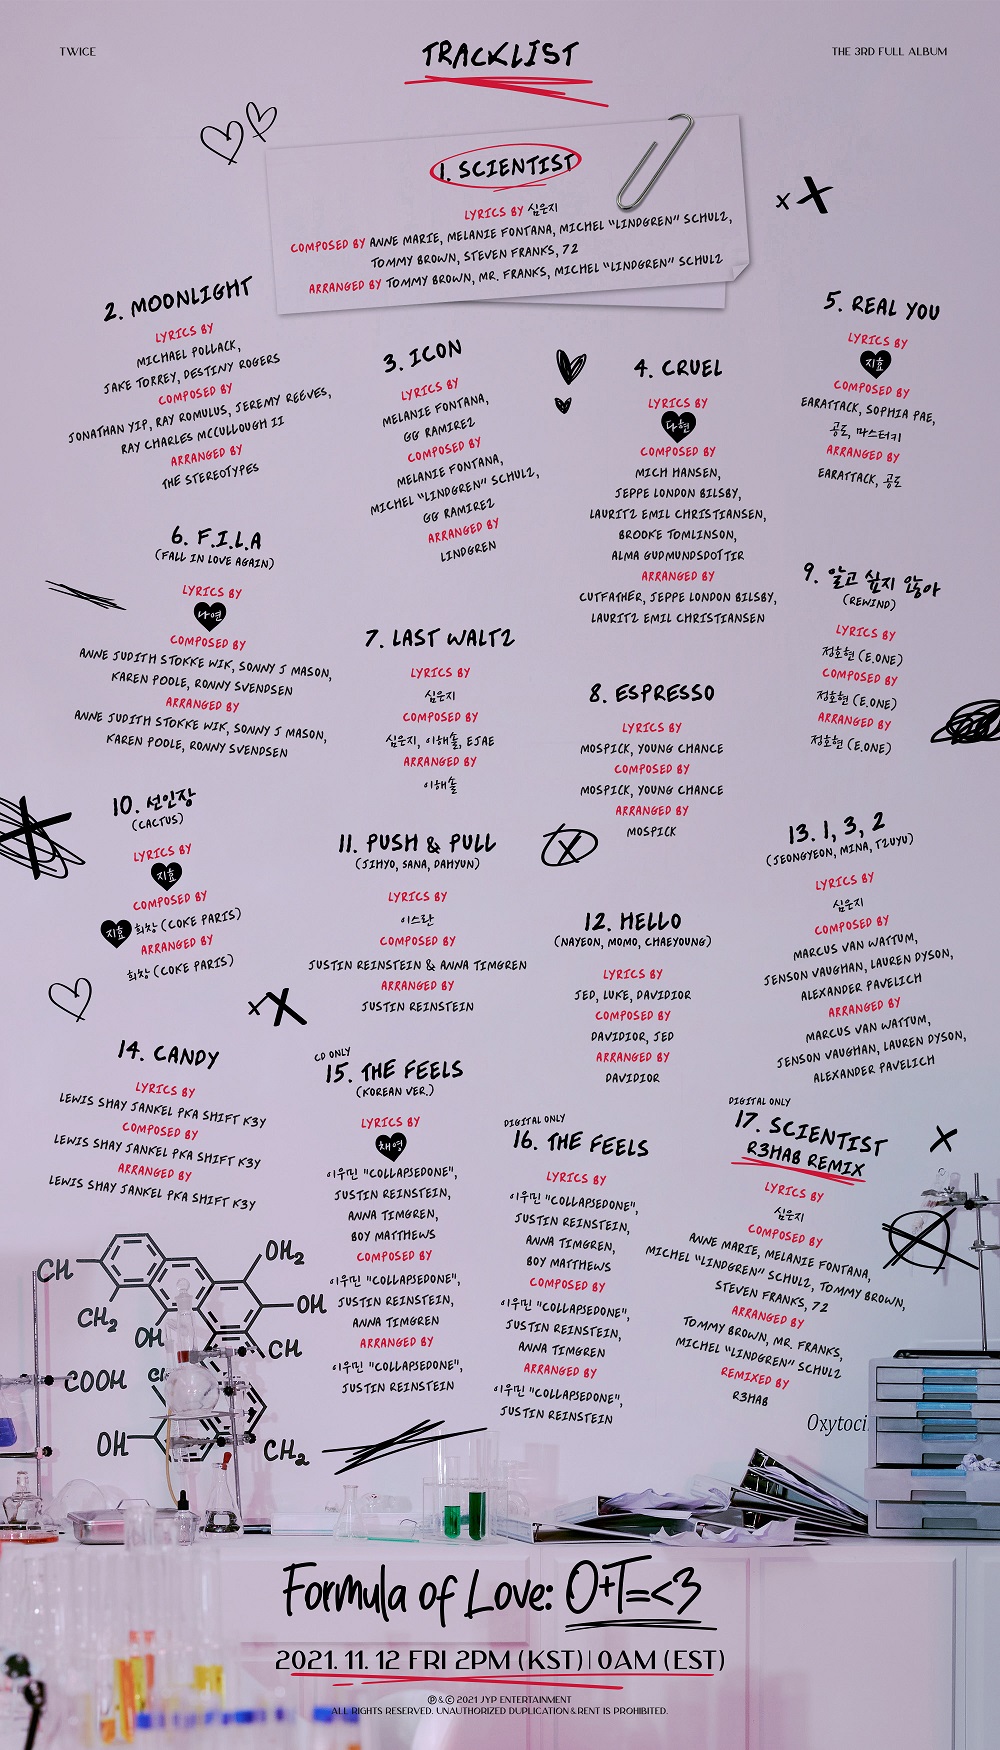 TWICE
TRACKLIST
THE 3RD FULL ALBUM
1. SCIENTIST
LYRICS BY 심은지
COMPOSED BY ANNE MARIE, MELANIE FONTANA, MICHEL "LINDGREN" SCHULZ,
TOMMY BROWN, STEVEN FRANKS, 72
ARRANGED BY TOMMY BROWN, MR. FRANKS, MICHEL "LINDGREN" SCHULZ
2. MOONLIGHT
LYRICS BY
MICHAEL POLLACK,
JAKE TORREY, DESTINY ROGERS
COMPOSED BY
JONATHAN YIP, RAY ROMULUS, JEREMY REEVES,
RAY CHARLES MCCULLOUGH II
ARRANGED BY
THE STEREOTYPES
3. ICON
LYRICS BY
MELANIE FONTANA,
GG RAMIREZ
COMPOSED BY
MELANIE FONTANA,
MICHEL "LINDGREN" SCHULZ,
GG RAMIREZ
ARRANGED BY
LINDGREN
4. CRUEL
LYRICS BY
다현
COMPOSED BY
MICH HANSEN,
JEPPE LONDON BILSBY,
LAURITZ EMIL CHRISTIANSEN,
BROOKE TOMLINSON,
ALMA GUDMUNDSDOTTIR
ARRANGED BY
CUTFATHER, JEPPE LONDON BILSBY,
LAURITZ EMIL CHRISTIANSEN
5. REAL YOU
LYRICS BY
지효
COMPOSED BY
EARATTACK, SOPHIA PAE,
공도, 따스터키
ARRANGED BY
EARATTACK, 공도
6. F.I.L.A
(FALL IN LOVE AGAIN)
LYRICS BY
나연
COMPOSED BY
ANNE JUDITH STOKKE WIK, SONNY J MASON,
KAREN POOLE, RONNY SVENDSEN
ARRANGED BY
ANNE JUDITH STOKKE WIK, SONNY J MASON,
KAREN POOLE, RONNY SVENDSEN
7. LAST WALTZ
LYRICS BY
심은지
COMPOSED BY
심은지, 이해솔, EJAE
ARRANGED BY
이해솔
8. ESPRESSO
LYRICS BY
MOSPICK, YOUNG CHANCE
COMPOSED BY
MOSPICK, YOUNG CHANCE
ARRANGED BY
MOSPICK
9. 알고 싶지 않아
(REWIND)
LYRICS BY
정호현 (E.ONE)
COMPOSED BY
정호현 (E.ONE)
ARRANGED BY
정호현 (E.ONE)
10. 선인장
(CACTUS)
LYRICS BY
지효
COMPOSED BY
지효 희창 (COKE PARIS)
ARRANGED BY
희창 (COKE PARIS)
11. PUSH & PULL
(JIHYO, SANA, DAHYUN)
LYRICS BY
이스란
COMPOSED BY
JUSTIN REINSTEIN & ANNA TIMGREN
ARRANGED BY
JUSTIN REINSTEIN
12. HELLO
(NAYEON, MOMO, CHAEYOUNG)
LYRICS BY
JED, LUKE, DAVIDIOR
COMPOSED BY
DAVIDIOR, JED
ARRANGED BY
DAVIDIOR
13. 1, 3, 2
(JEONGYEON, MINA, TZUYU)
LYRICS BY
심은지
COMPOSED BY
MARCUS VAN WATTUM,
JENSON VAUGHAN, LAUREN DYSON,
ALEXANDER PAVELICH
ARRANGED BY
MARCUS VAN WATTUM,
JENSON VAUGHAN, LAUREN DYSON,
ALEXANDER PAVELICH
14. CANDY
LYRICS BY
LEWIS SHAY JANKEL PKA SHIFT K3Y
COMPOSED BY
LEWIS SHAY JANKEL PKA SHIFT K3Y
ARRANGED BY
LEWIS SHAY JANKEL PKA SHIFT K3Y
CD ONLY
15. THE FEELS
(KOREAN VER.)
LYRICS BY
채영
이우민 "COLLAPSEDONE",
JUSTIN REINSTEIN,
ANNA TIMGREN,
BOY MATTHEWS
COMPOSED BY
이우민 "COLLAPSEDONE",
JUSTIN REINSTEIN,
ANNA TIMGREN
ARRANGED BY
이우민 "COLLAPSEDONE",
JUSTIN REINSTEIN
DIGITAL ONLY
16. THE FEELS
LYRICS BY
이우민 "COLLAPSEDONE",
JUSTIN REINSTEIN,
ANNA TIMGREN,
BOY MATTHEWS
COMPOSED BY
이우민 "COLLAPSEDONE",
JUSTIN REINSTEIN,
ANNA TIMGREN
ARRANGED BY
이우민 "COLLAPSEDONE",
JUSTIN REINSTEIN
DIGITAL ONLY
17. SCIENTIST
R3HAB REMIX
LYRICS BY
심은지
COMPOSED BY
ANNE MARIE, MELANIE FONTANA,
MICHEL "LINDGREN" SCHULZ, TOMMY BROWN,
STEVEN FRANKS, 72
ARRANGED BY
TOMMY BROWN, MR. FRANKS,
MICHEL "LINDGREN" SCHULZ
REMIXED BY
R3HAB
CH
OH2
CH2
OH
OH
CH
COOH
OH
CH2
Oxytoci
Formula of Love: O+T=<3
2021. 11. 12 FRI 2PM (KST) | 0AM (EST)
℗ & © 2021 JYP ENTERTAINMENT
ALL RIGHTS RESERVED. UNAUTHORIZED DUPLICATION & RENT IS PROHIBITED.